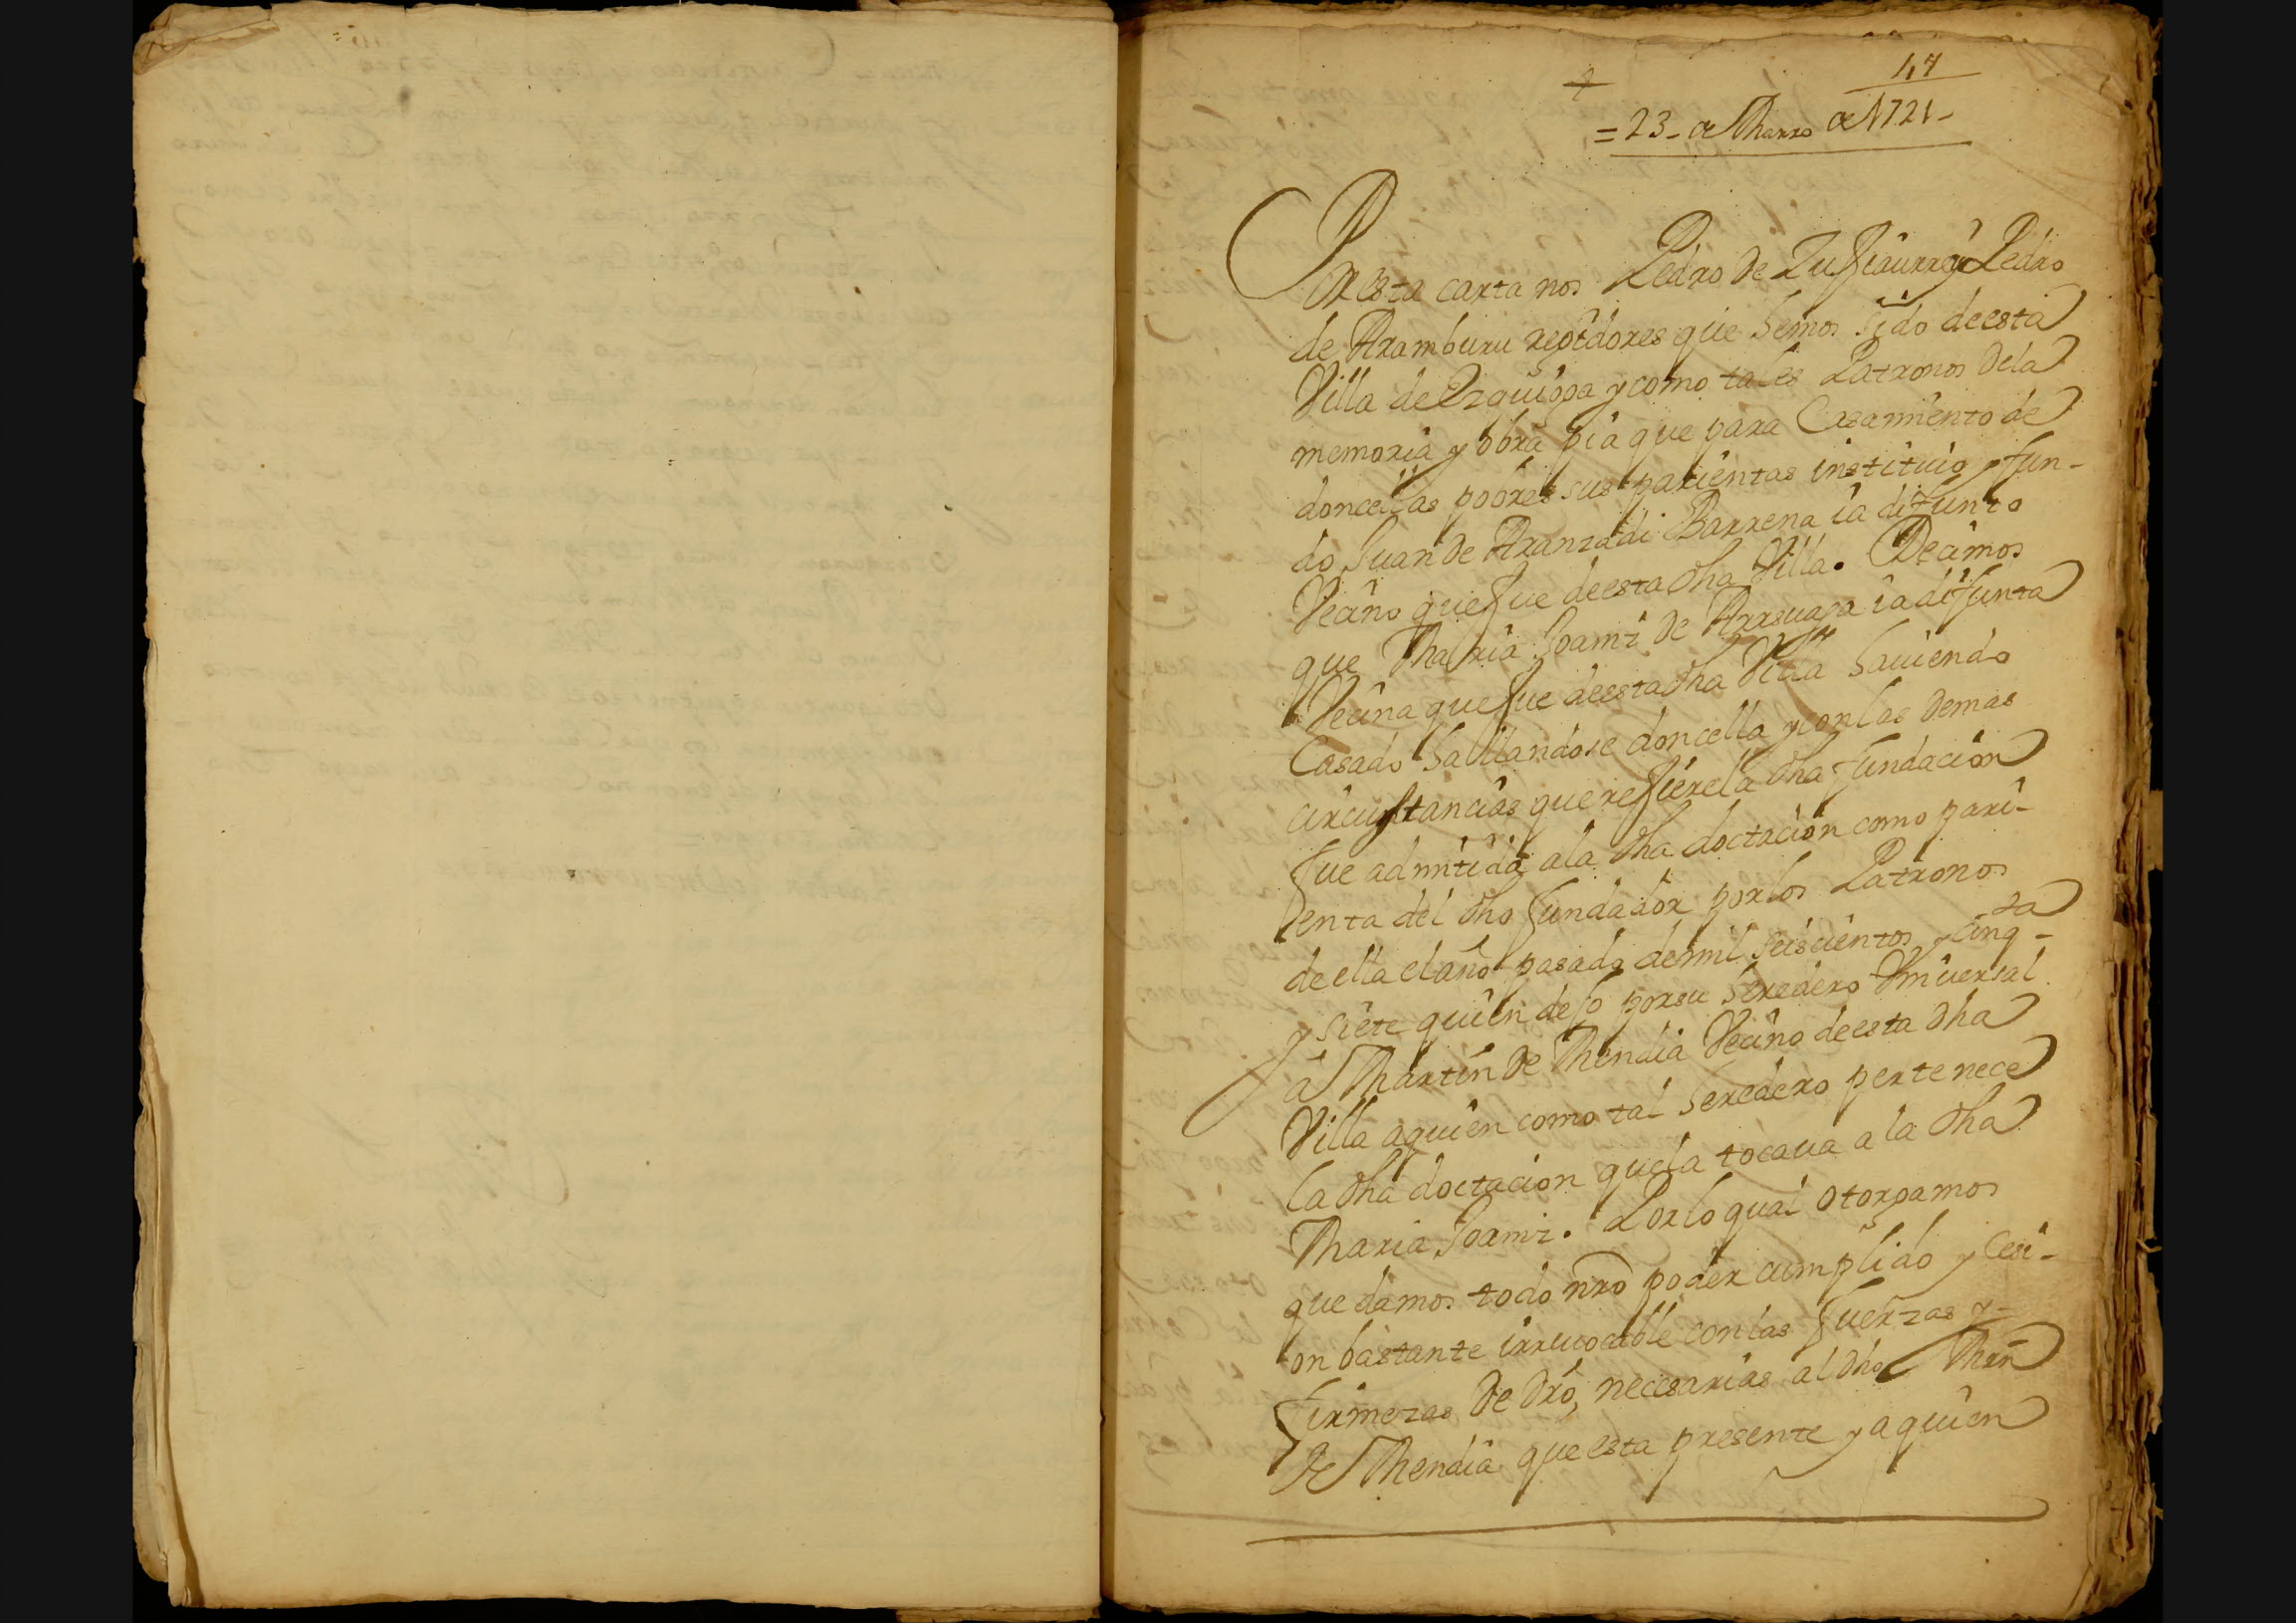 47
= 23_ de Marzo de 1721_
Por esta carta nos Pedro de Zufiaurre y Pedro
de Aramburu regidores que hemos sido de esta
Villa de Ezquioga y como tales Patronos de la
memoria y obra pia que para Casamiento de
doncellas pobres sus parientas instituio y fun-
do Juan de Aranzadi Barrena ia difunto
Vecino que fue de esta dha Villa. Decimos
que Maria Joamiz de Arasuaga ia difunta
Vecina que fue de esta dha Villa haviendo
Casado hallandose doncella y con las demas
circunstancias que refiere la dha fundacion
fue admitida a la dha doctacion como pari-
enta del dho fundador por los Patronos
de ella el año pasado de mil seiscientos y cinq-ta
y siete quien dejo por su heredero Vniversal
a Martin de Mendia Vecino de esta dha
Villa a quien como tal heredero pertenece
la dha doctacion que la tocaua a la dha
Maria Joamiz. Por lo qual otorgamos
que damos todo nro poder cumplido y Cesi-
on bastante irrevocable con las fuerzas y-
firmezas de dro, necesarias al dho Mrn
de Mendia que esta presente y a quien